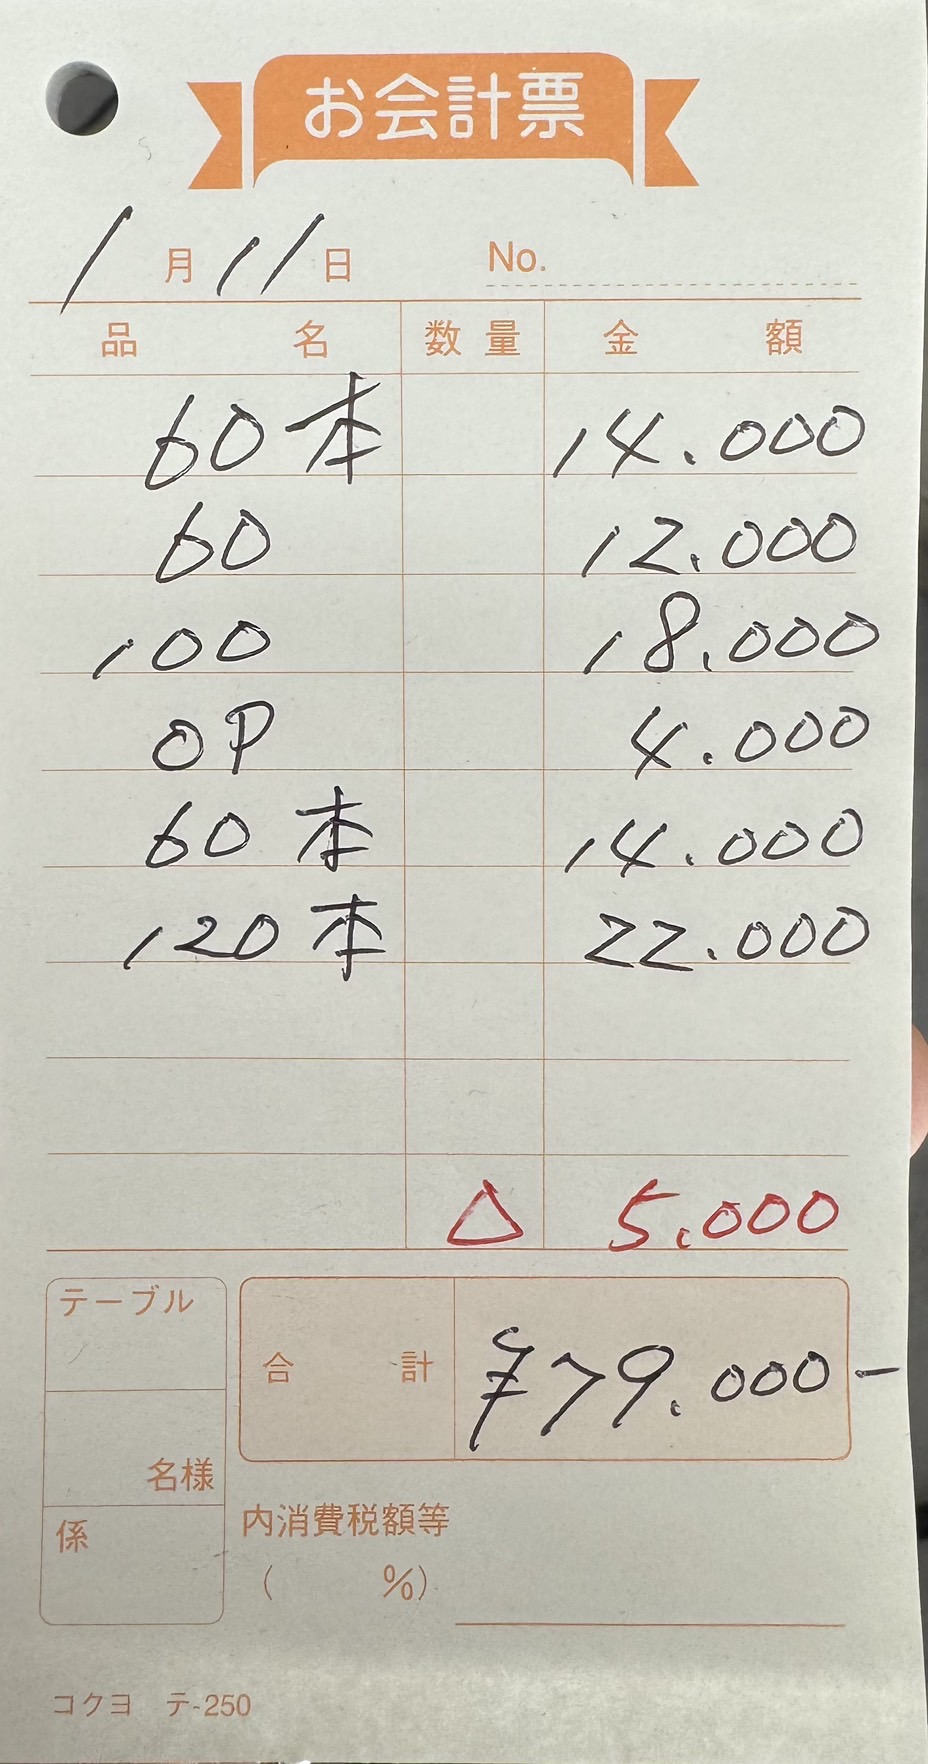 お会計票
1月11日 No.
品名 数量 金額
60本 14.000
60 12.000
100 18.000
OP 4.000
60本 14.000
120本 22.000
△ 5.000
テーブル
合計 ¥79.000-
名様
係
内消費税額等
( %)
コクヨ テ-250